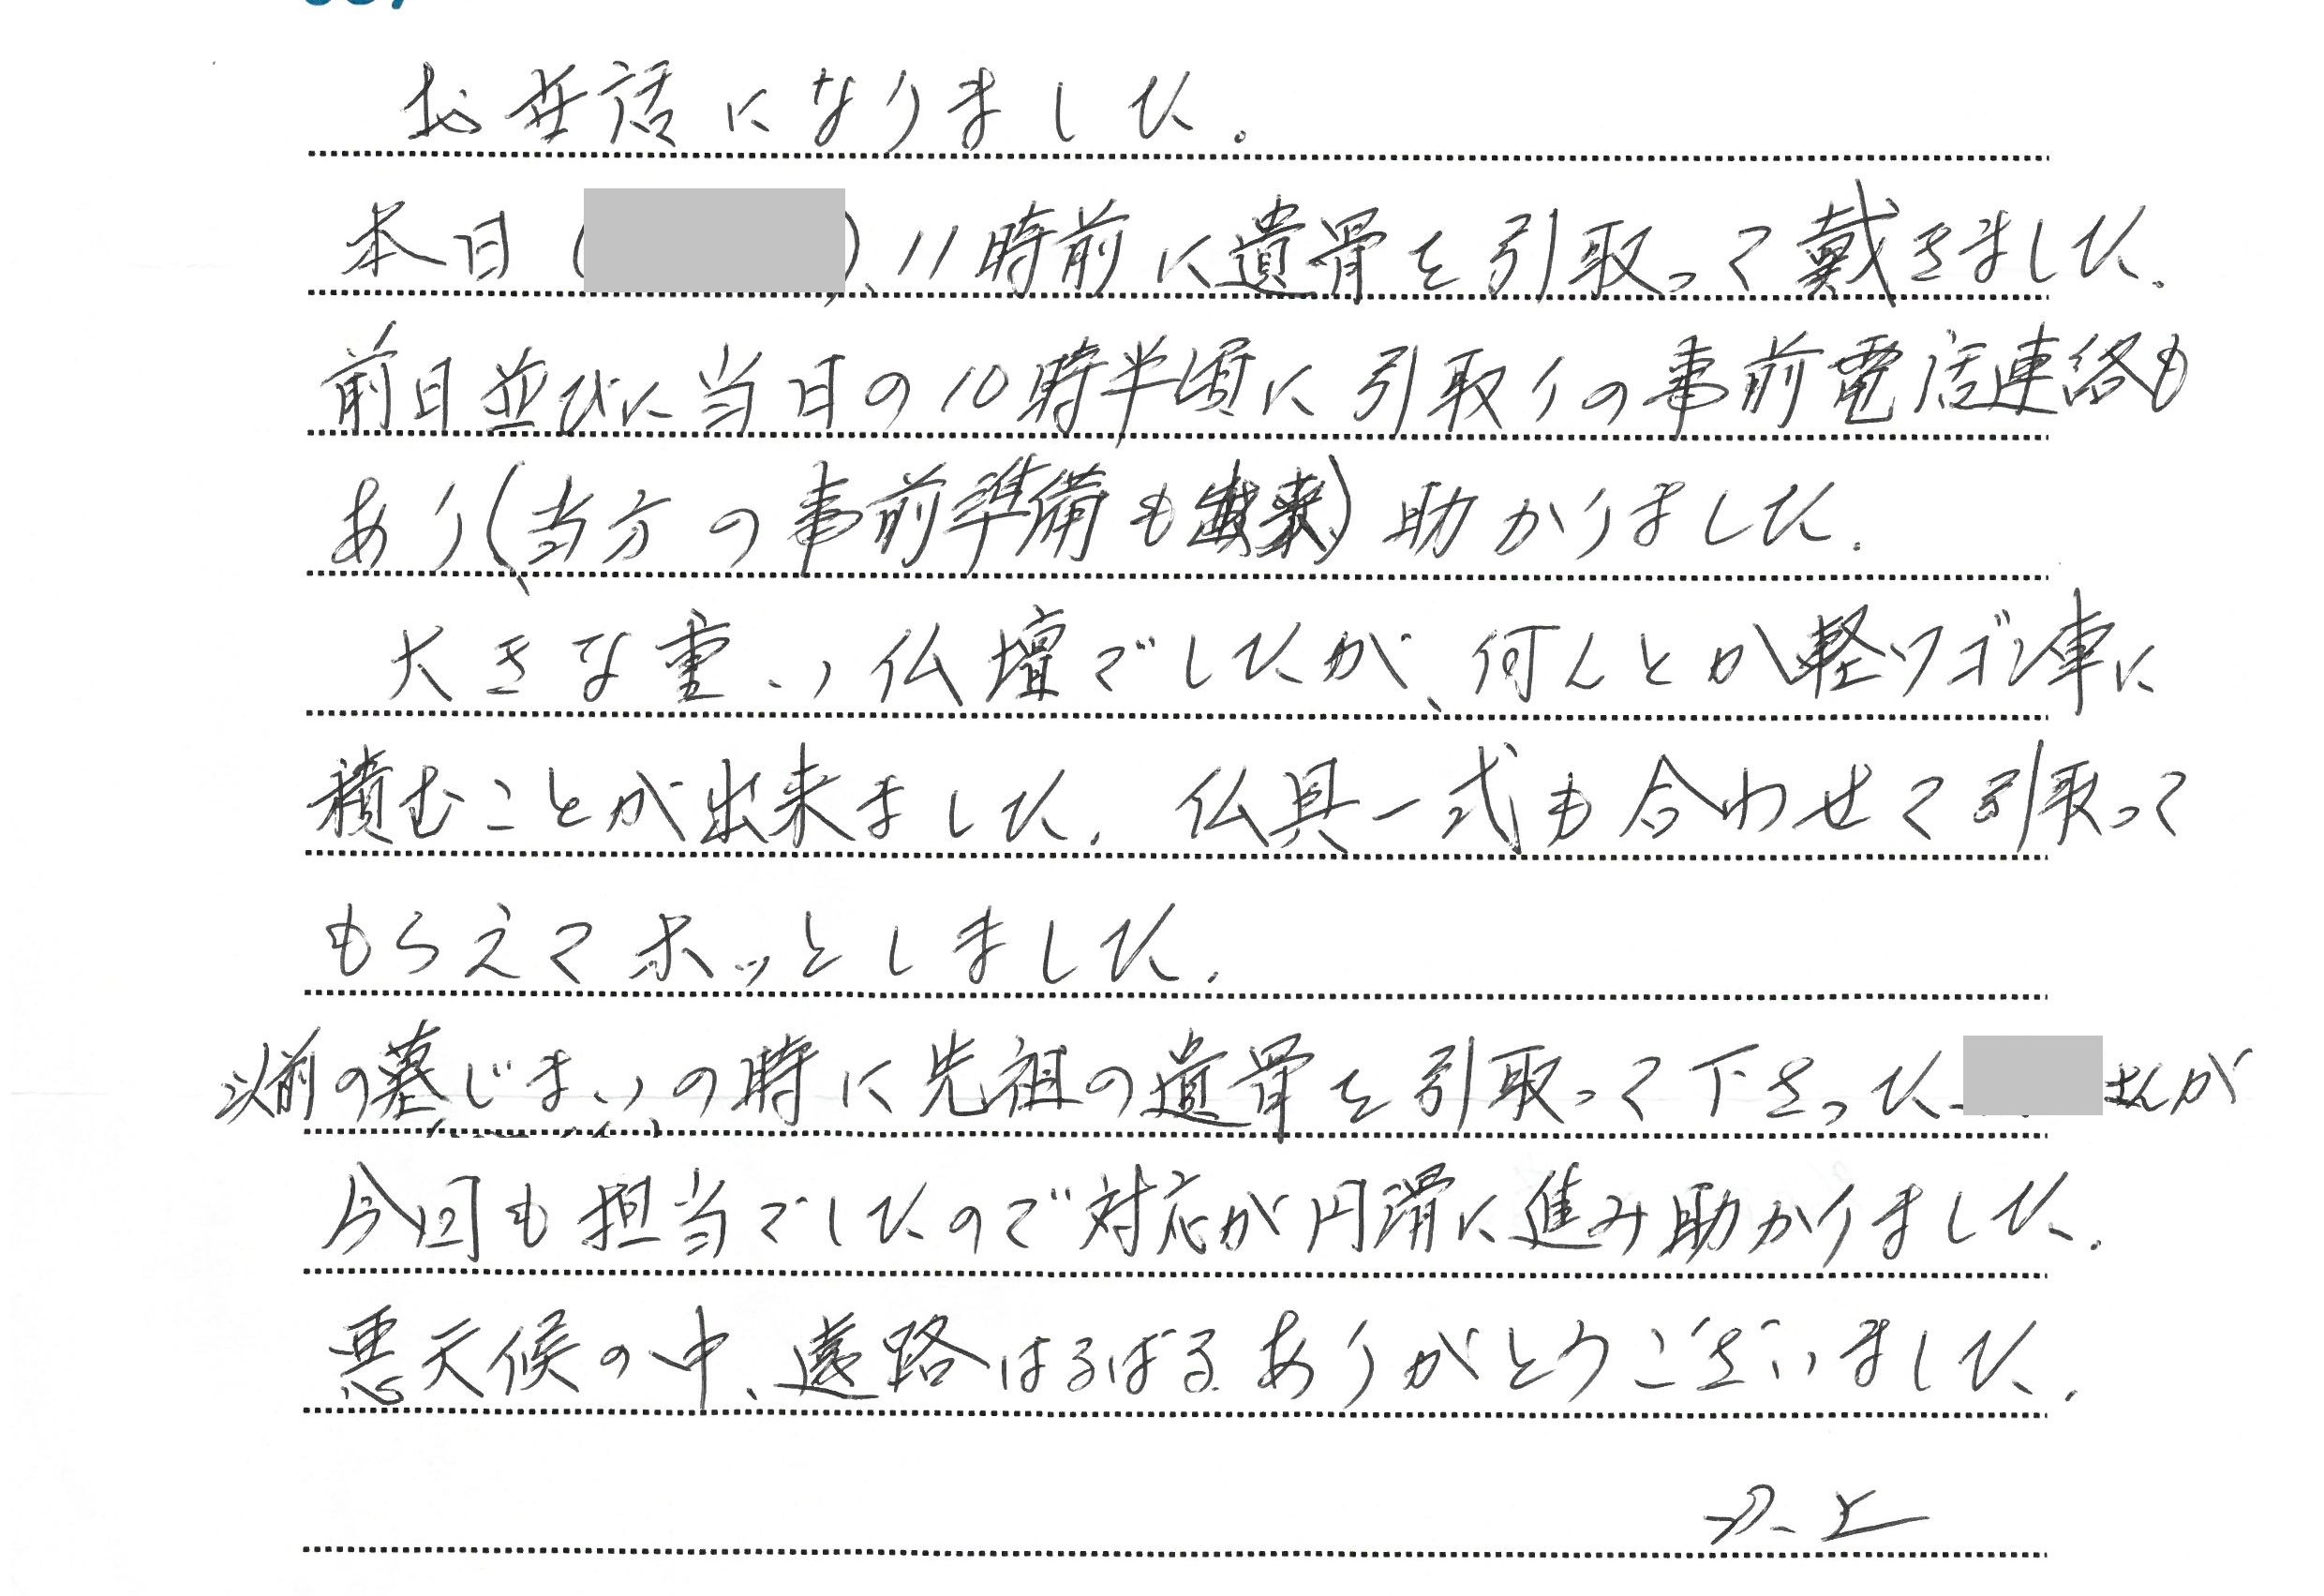 お世話になりました。
本日( )、11時前に遺骨を引取って戴きました。
前日並びに当日の10時半頃に引取りの事前電話連絡も
あり(当方の事前準備も出来)助かりました。
大きな重い仏壇でしたが、何んとか軽ワゴン車に
積むことが出来ました。仏具一式も合わせて引取って
もらえてホッとしました。
以前の墓じまいの時に先祖の遺骨を引取って下さった さんが
今回も担当でしたので対応が円滑に進み助かりました。
悪天候の中、遠路はるばるありがとうございました。
以上